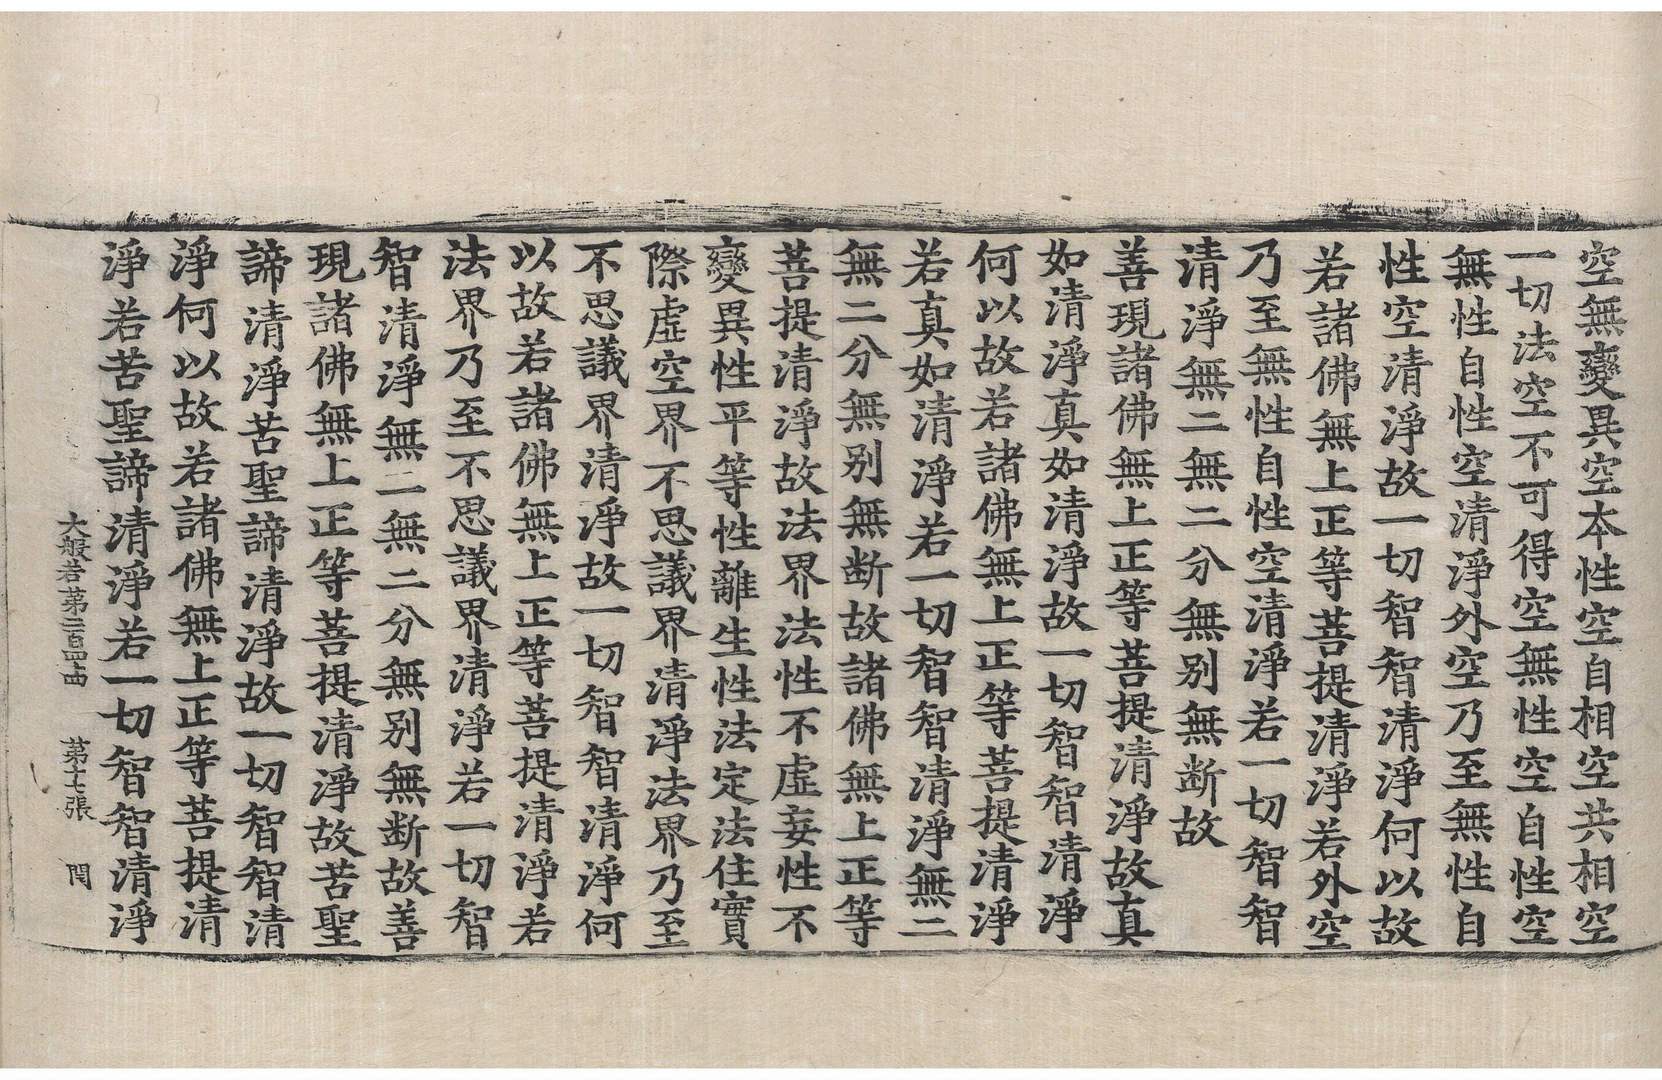 空無變異空本性空自相空共相空
一切法空不可得空無性空自性空
無性自性空清淨外空乃至無性自
性空清淨故一切智智清淨何以故
若諸佛無上正等菩提清淨若外空
乃至無性自性空清淨若一切智智
清淨無二無二分無别無断故
善現諸佛無上正等菩提清淨故真
如清淨真如清淨故一切智智清淨
何以故若諸佛無上正等菩提清淨
若真如清淨若一切智智清淨無二
無二分無别無断故諸佛無上正等
菩提清淨故法界法性不虛妄性不
變異性平等性離生性法定法住實
際虛空界不思議界清淨法界乃至
不思議界清淨故一切智智清淨何
以故若諸佛無上正等菩提清淨若
法界乃至不思議界清淨若一切智
智清淨無二無二分無别無断故善
現諸佛無上正等菩提清淨故苦聖
諦清淨苦聖諦清淨故一切智智清
淨何以故若諸佛無上正等菩提清
淨若苦聖諦清淨若一切智智清淨
大般若苐二百 苐十七張